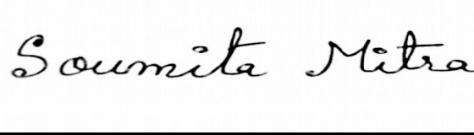 Soumita Mitra